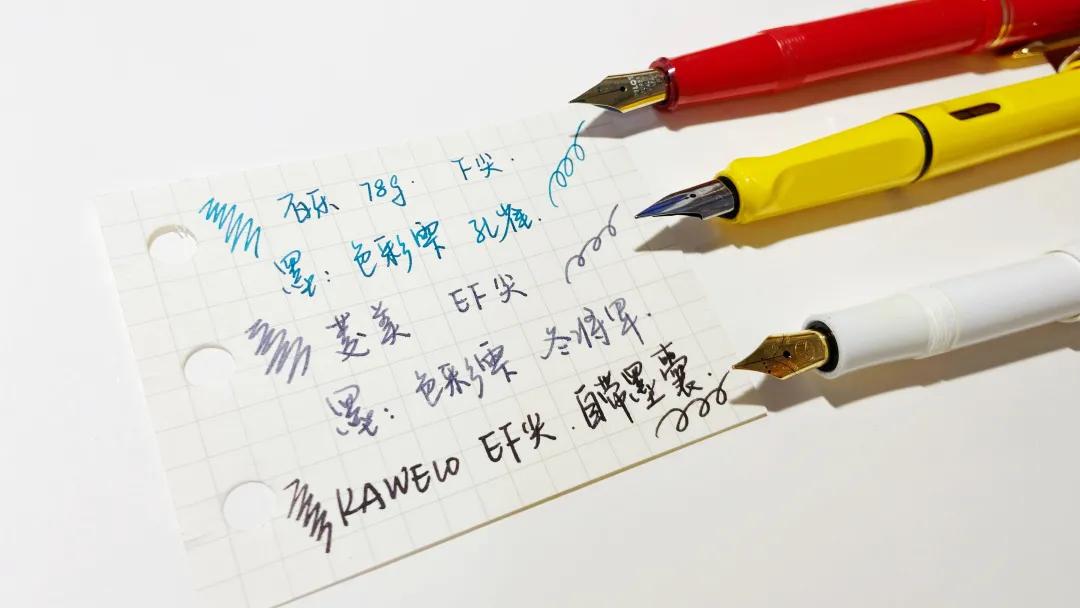 百乐 78g. F尖.
墨：色彩雫 孔雀.
菱美 EF尖
墨：色彩雫 冬将军.
KAWECO EF尖.自带墨囊.